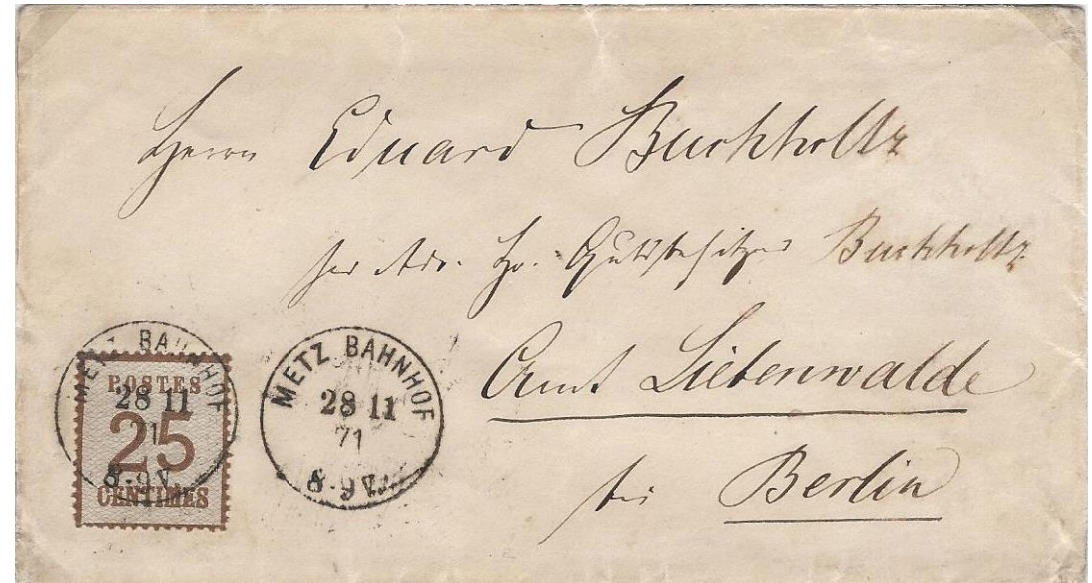 Herrn Eduard Buchholtz
per Adr. Hr. Gutsbesitzer Buchholtz
Amt Liebenwalde
bei Berlin
METZ BAHNHOF
28 11
71
8-9 V.
POSTES
25
CENTIMES
METZ BAHNHOF
28 11
71
8-9 V.